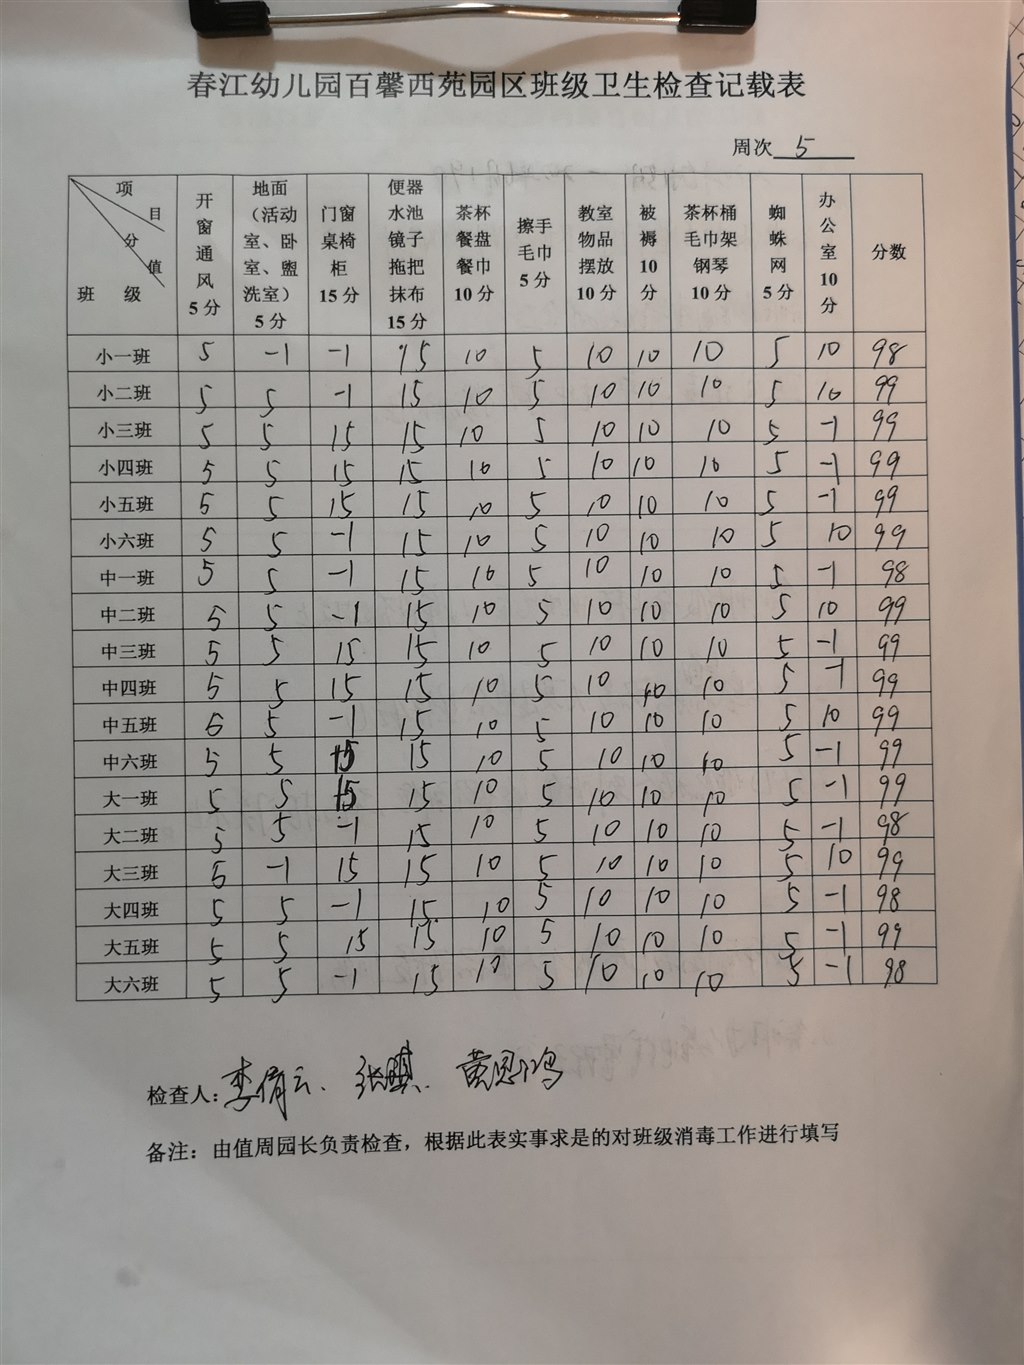 春江幼儿园百馨西苑园区班级卫生检查记载表
周次 5
项目 分值 班级 开窗通风5分 地面（活动室、卧室、盥洗室）5分 门窗桌椅柜15分 便器水池镜子拖把抹布15分 茶杯餐盘餐巾10分 擦手毛巾5分 教室物品摆放10分 被褥10分 茶杯桶毛巾架钢琴10分 蜘蛛网5分 办公室10分 分数
小一班 5 -1 -1 15 10 5 10 10 10 5 10 98
小二班 5 5 -1 15 10 5 10 10 10 5 10 99
小三班 5 5 15 15 10 5 10 10 10 5 -1 99
小四班 5 5 15 15 10 5 10 10 10 5 -1 99
小五班 5 5 15 15 10 5 10 10 10 5 -1 99
小六班 5 5 -1 15 10 5 10 10 10 5 10 99
中一班 5 5 -1 15 10 5 10 10 10 5 -1 98
中二班 5 5 -1 15 10 5 10 10 10 5 10 99
中三班 5 5 15 15 10 5 10 10 10 5 -1 99
中四班 5 5 15 15 10 5 10 10 10 5 -1 99
中五班 5 5 -1 15 10 5 10 10 10 5 10 99
中六班 5 5 15 15 10 5 10 10 10 5 -1 99
大一班 5 5 15 15 10 5 10 10 10 5 -1 99
大二班 5 5 -1 15 10 5 10 10 10 5 -1 98
大三班 5 -1 15 15 10 5 10 10 10 5 10 99
大四班 5 5 -1 15 10 5 10 10 10 5 -1 98
大五班 5 5 15 15 10 5 10 10 10 5 -1 99
大六班 5 5 -1 15 10 5 10 10 10 5 -1 98
检查人：李倩云、张騏、黄恩鸿
备注：由值周园长负责检查，根据此表实事求是的对班级消毒工作进行填写